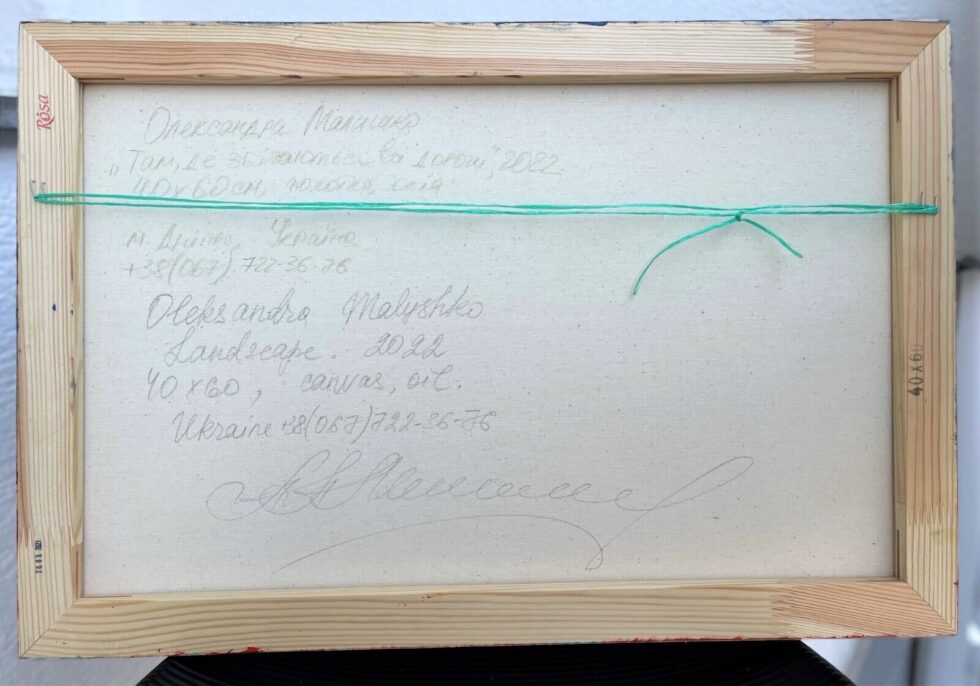 Rosa
Олександра Малишко
„Там, де збігаються всі дороги", 2022
40х60см, полотно, олія
м. Дніпро, Україна
+38(067) 722-36-76
Oleksandra Malyshko
Landscape. 2022
40x60, canvas, oil.
Ukraine +38(067)722-36-76
40X60